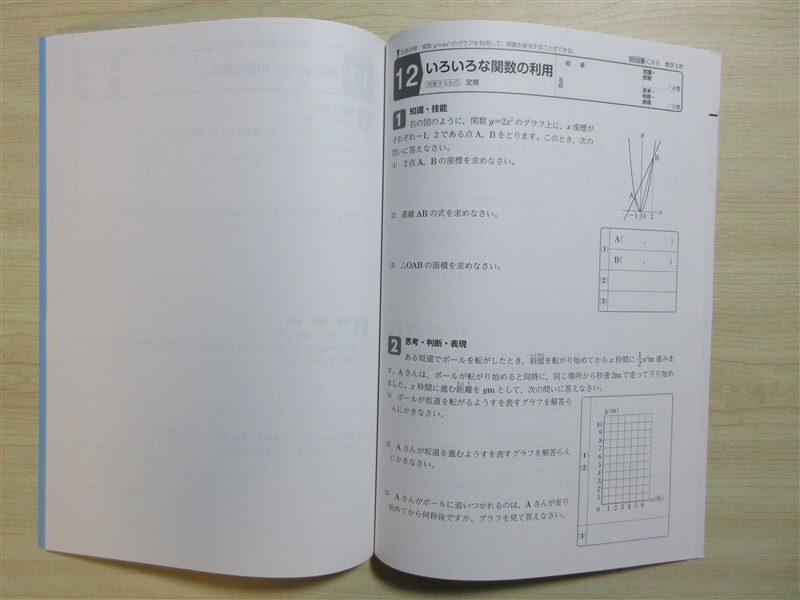 到達目標:関数y=ax²のグラフを利用して,問題を解決することができる。
CHE 数学3年
12 いろいろな関数の利用
用意するもの 定規
組 番
名前
知識・技能 /4問
思考・判断・表現 /3問
1 知識・技能
右の図のように,関数 y=2x² のグラフ上に,x 座標が
それぞれ-1,2 である点A,Bをとります。このとき,次の
問いに答えなさい。
(1) 2点A,Bの座標を求めなさい。
(2) 直線ABの式を求めなさい。
(3) △OABの面積を求めなさい。
y
B
A
-1 O 2 x
(1) A( , )
B( , )
(2)
(3)
2 思考・判断・表現
ある坂道でボールを転がしたとき,斜面を転がり始めてから x 秒間に 1/2x²m 進みま
す。Aさんは,ボールが転がり始めると同時に,同じ場所から秒速2mで走って下り始め
ました。x 秒間に進む距離を ym として,次の問いに答えなさい。
(1) ボールが坂道を転がるようすを表すグラフを解答ら
んにかきなさい。
(2) Aさんが坂道を進むようすを表すグラフを解答らん
にかきなさい。
(3) Aさんがボールに追いつかれるのは,Aさんが走り
始めてから何秒後ですか。グラフを見て答えなさい。
y(m)
10
9
8
7
6
5
4
3
2
1
0 1 2 3 4 5 6 x(秒)
(1)
(2)
(3)